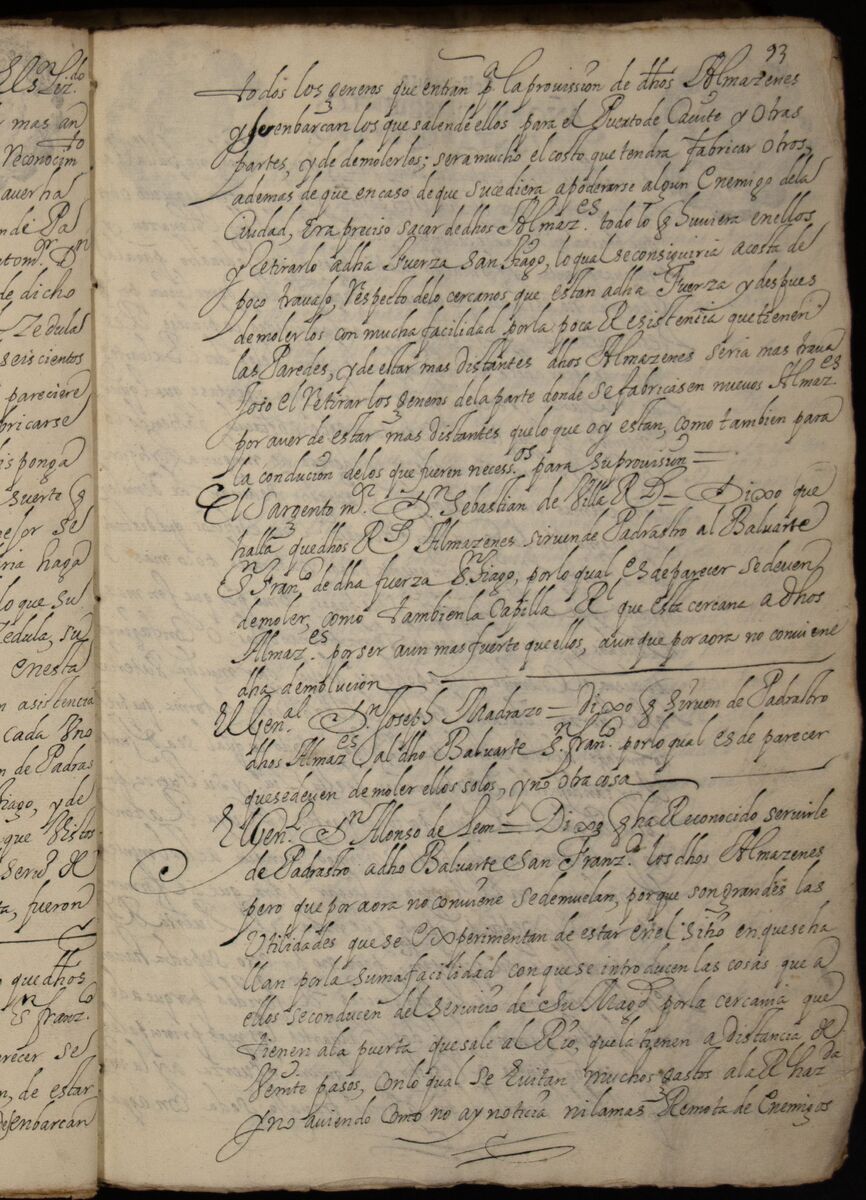 Ell sʳ Liz.ᵈᵒ
y mas an
Reconocimᵗᵒ
averha
n de Pa
utomʳ. Dⁿ
de dicho
Zedula
seiscientos
pareciere
bricarse
isponga
suerte q̃
esor se
ria haga
lo que su
Zedula, su
enesta
n asistencia
cada vno
n de Padras
hiago, y de
que vistos
servᵒ de
ta, fueron
que dhos
Sⁿ franz.ᶜᵒ
recer se
n, de estar
desenbarcan
93
todos los generos que entran pᵃ la provission de dhos Almazenes
y se enbarcan los que salen de ellos para el Puerto de Cavite y otras
partes, y de demolerlos; sera mucho el costo que tendra fabricar otros,
ademas de que en caso de que sucediera apoderarse algun Enemigo dela
Ciudad, era preciso sacar de dhos Almazᵉˢ. todo lo q̃ huviera en ellos
y retirarlo a dha Fuerza San tiago, lo qual se conseguiria acosta de
poco travajo, respecto delo cercanos que estan a dha Fuerza y despues
demolerlos con mucha facilidad por la poca Resistencia que tienen
las Paredes, y de estar mas distantes dhos Almazenes seria mas trava
joso el retirar los generos dela parte donde se fabricasen nuevos Almazᵉˢ
por aver de estar mas distantes que lo que oy estan, como tambien para
la conducion delos que fueren necessᵒˢ para su provision =
El Sargento mʳ. Dⁿ Sebastian de Villa Rˡ = Dixo que
halla que dhos Rˢ Almazenes sirven de Padrastro al Baluarte
Sⁿ Franᶜᵒ de dha fuerza Sⁿtiago, por lo qual es de parecer se deven
demoler, como tambien la Capilla Rˡ que esta cercana a dhos
Almazᵉˢ. por ser aun mas fuerte que ellos, aunque por aora no conviene
dha demolucion
El Genᵃˡ. Dⁿ Joseph Madrazo = Dixo q̃ sirven de Padrastro
dhos Almazᵉˢ al dho Baluarte Sⁿ franᶜᵒ. por lo qual es de parecer
que se deven demoler ellos solos, y no otra cosa
El Genˡ. Dⁿ Alonso de Leon = Dixo q̃ ha Reconocido servirle
de Padrastro a dho Baluarte San Franzᶜᵒ. los dhos Almazenes
pero que por aora no conviene se demuelan, porque son grandes las
Utilidades que se experimentan de estar en el sitio en que se ha
llan por la suma facilidad con que se introducen las cosas que a
ellos se conducen del servicio de Su Magᵈ por la cercania que
tienen ala puerta que sale al Rio, que la tienen a distancia de
Veinte pasos, con lo qual se Evitan muchos gastos ala Rˡ hazᵈᵃ
y no aviendo como no ay noticia ni la mas Remota de Enemigos